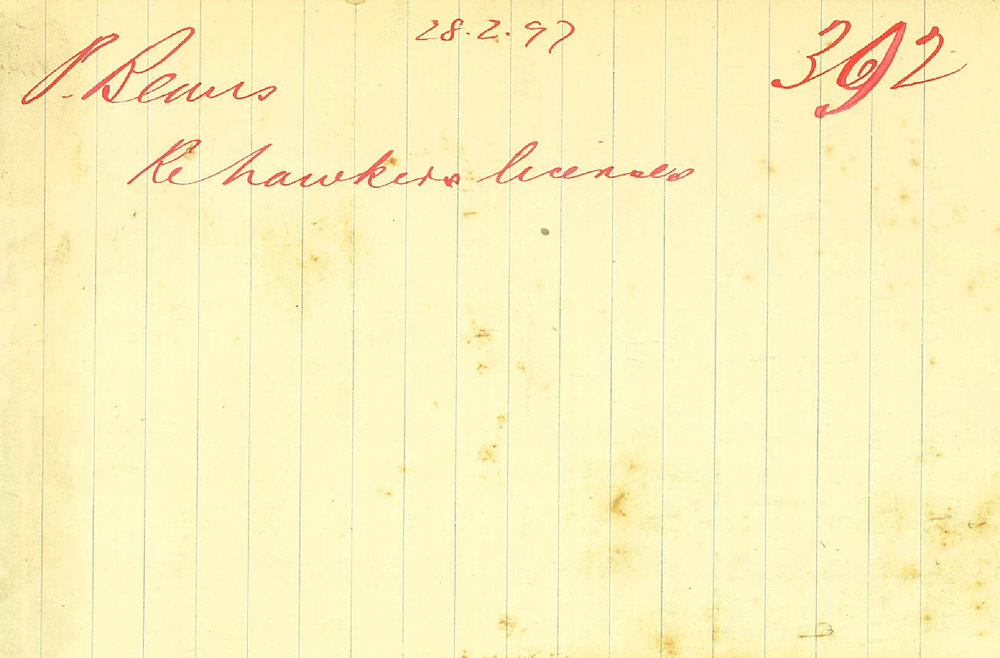 28.2.97
392
P. Beaurs
Re hawkers licenses